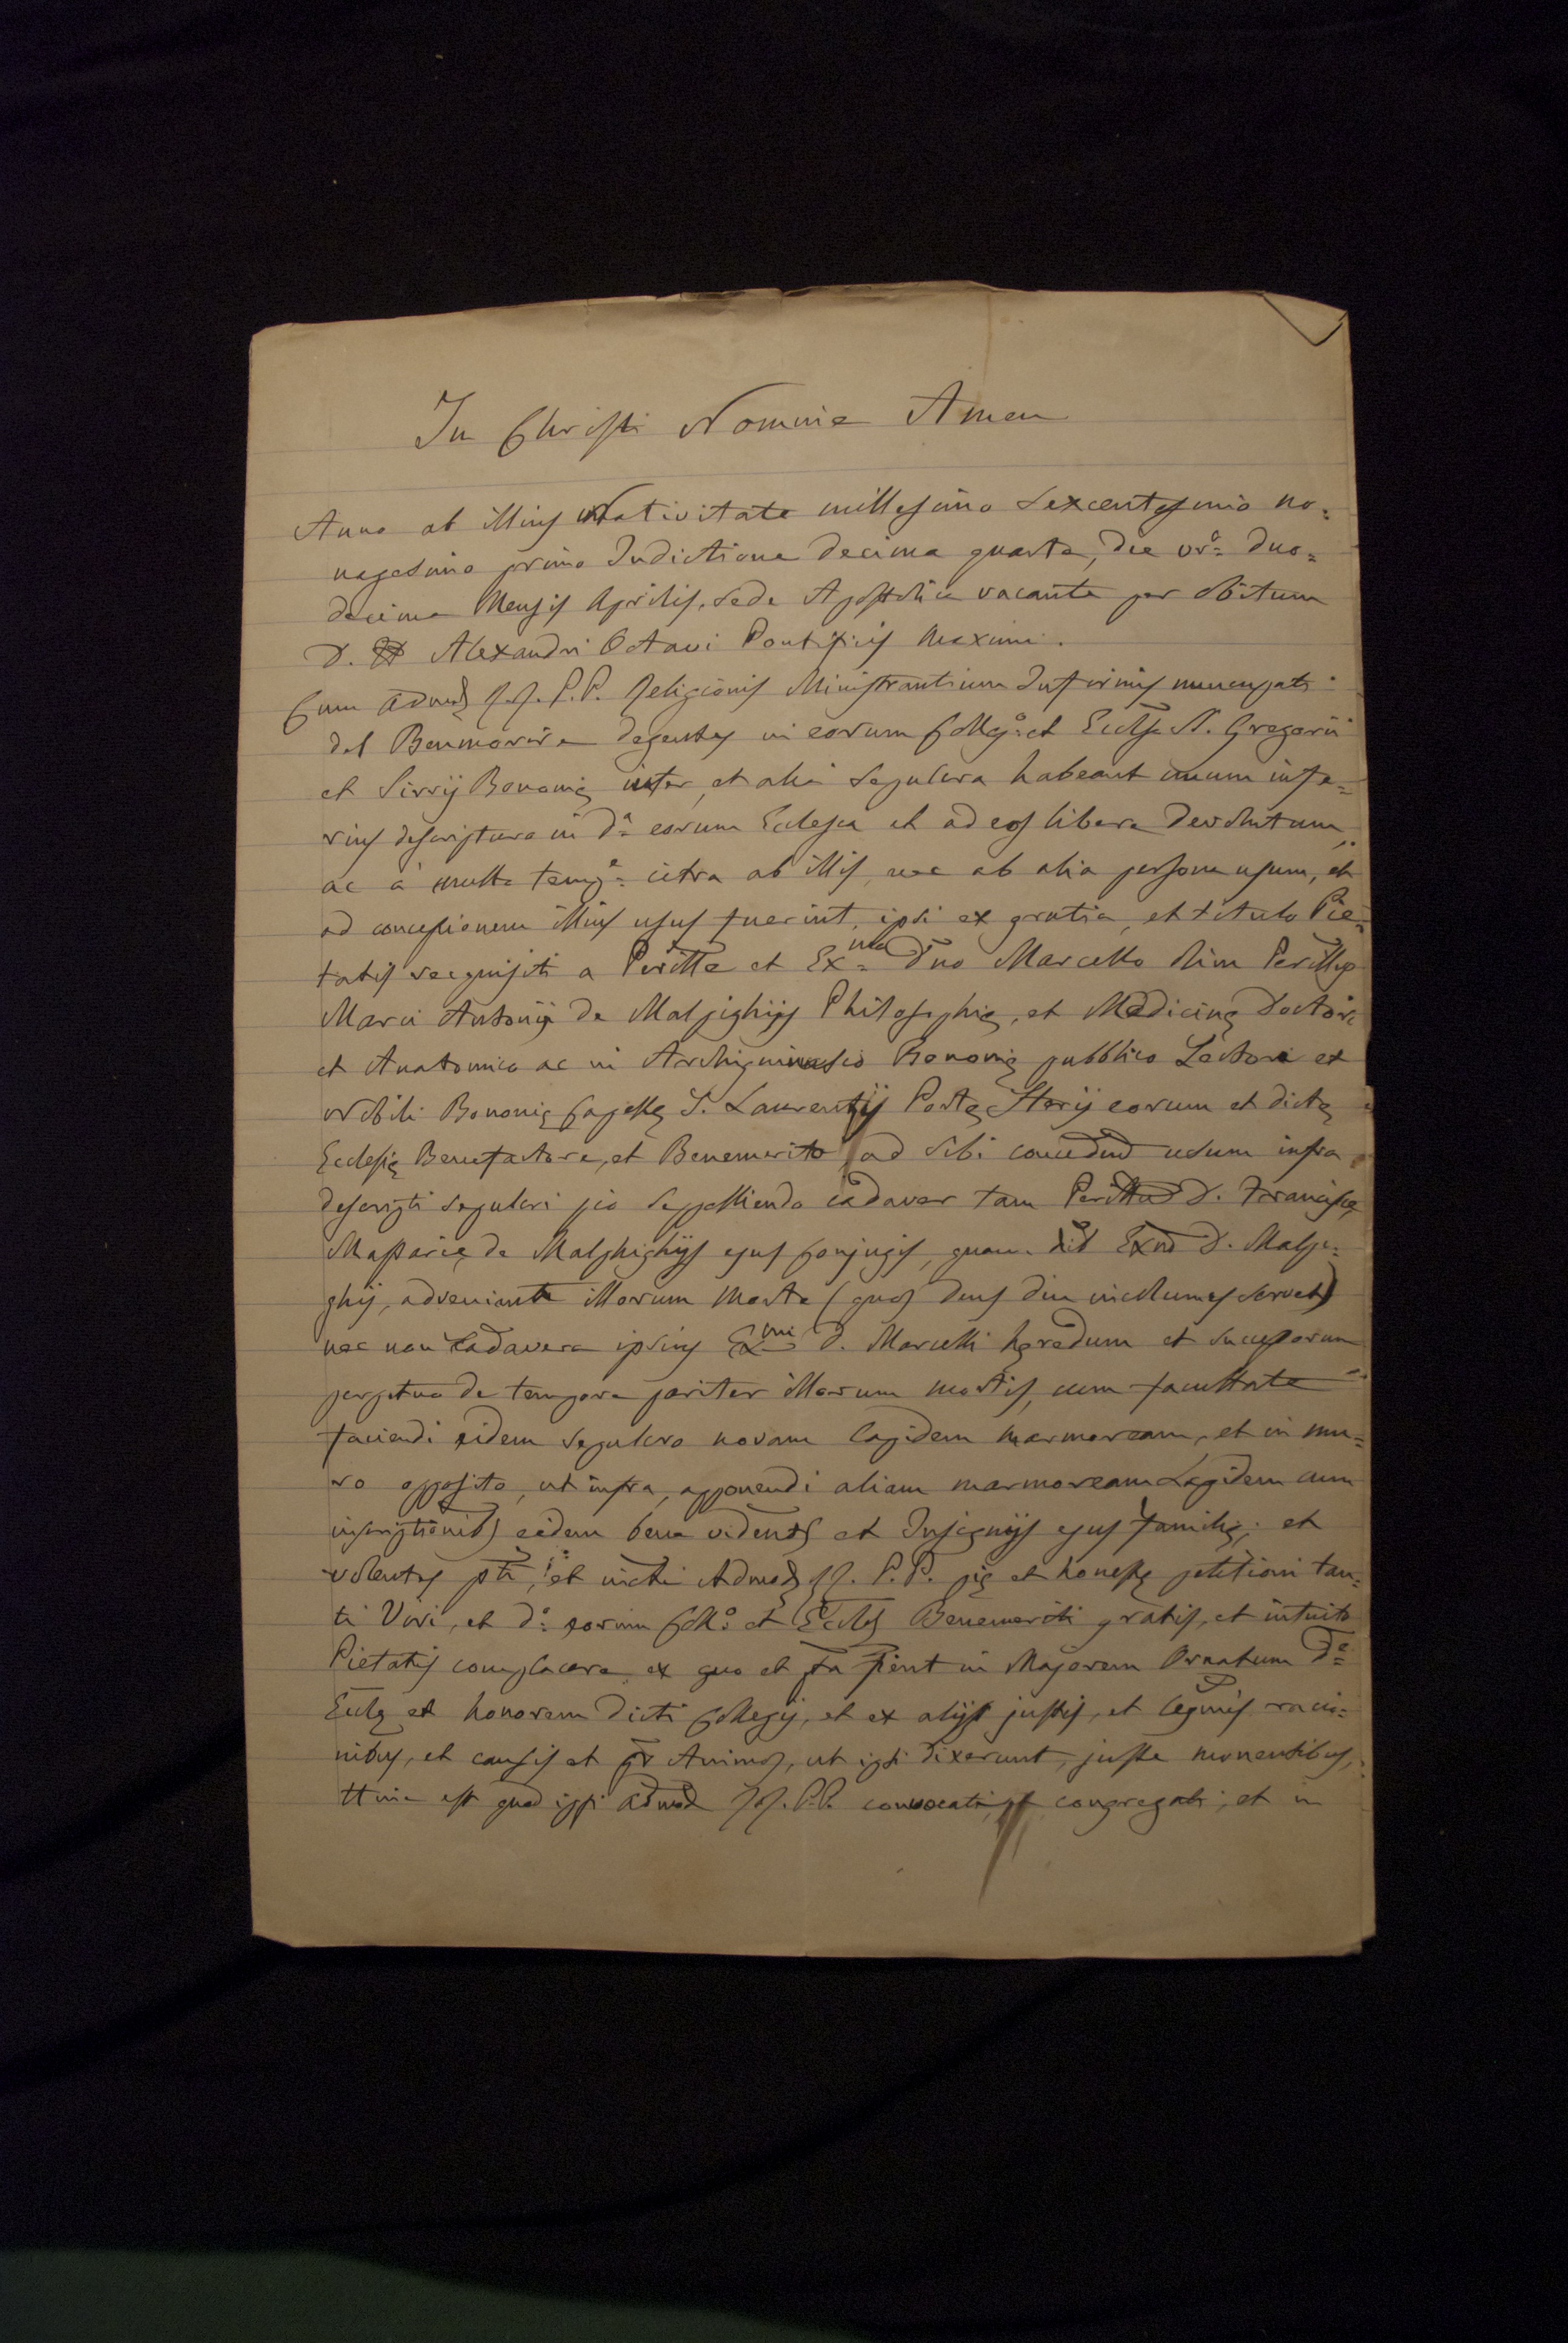 In Christi Nomine Amen
Anno ab illius Nativitate millesimo sexcentesimo no=
nagesimo primo Indictione decima quarta, die vo.º duo=
decima Mensis Aprilis, sede Apostolica vacante per obitum
D. Alexandri Octavi Pontificis Maximi.
Cum adm. RR. P.P. Religionis Ministrantium Infirmis nuncupati
del Benmorire degentes in eorum Coll.º et Eccl. S. Gregorii
et Sirij Bononię inter, et alia sepulcra habeant unum infe=
rius descriptum in d.ª eorum Eclesia et ad eos libere devolutum,
ac à multo temp.e citra ab illis, nec ab alia persona usum, et
ad concessionem illius usus fuerint, ipsi ex gratia, et titulo Pie=
tatis requisiti a Perill.e et Ex.mo Dño Marcello olim Perill.
Marci Antonij de Malpighijs Philosophię, et Medicinę Doctore
et Anatomico ac in Archiginnasio Bononię pubblico Lectore et
Nobili Bononię Capellę S. Laurentij Portę Sterij eorum et dictę
Eclesię Benefactore, et Benemerito ad sibi concedend usum infra
descripti sepulcri pio sepelliendo cadaver tam D. Franciscę
Massarię de Malphighijs ejus Conjugis, quam D. Malpi=
ghij, adveniente illorum Morte (quos Deus diu incolumes servet)
nec non Cadavera ipsius Ex.mi D. Marcelli hęredum et successorum
perpetuo de tempore pariter illorum mortis, cum facultate
faciendi eidem sepulcro novam lapidem marmoream, et in mu=
ro opposito, ut infra, apponendi aliam marmoream Lapidem cum
inscriptionib) eidem bene vident et Insignijs ejus familię; et
volentes et Adm RR. P.P. pię et honestę petitioni tan=
ti Viri, et d.º eorum Coll.º et Eccl Benemeriti gratis, et intuito
Pietatis complacere ex quo et in Majorem Ornatum d.ę
Eclę et honorem dicti Collegij, et ex alijs justis, et legmis racio=
nibus, et causis et Animos, ut ipsi dixerunt, juste moventibus,
Hinc est quod ipsi adm RR. P.P. convocati, et congregati, et in